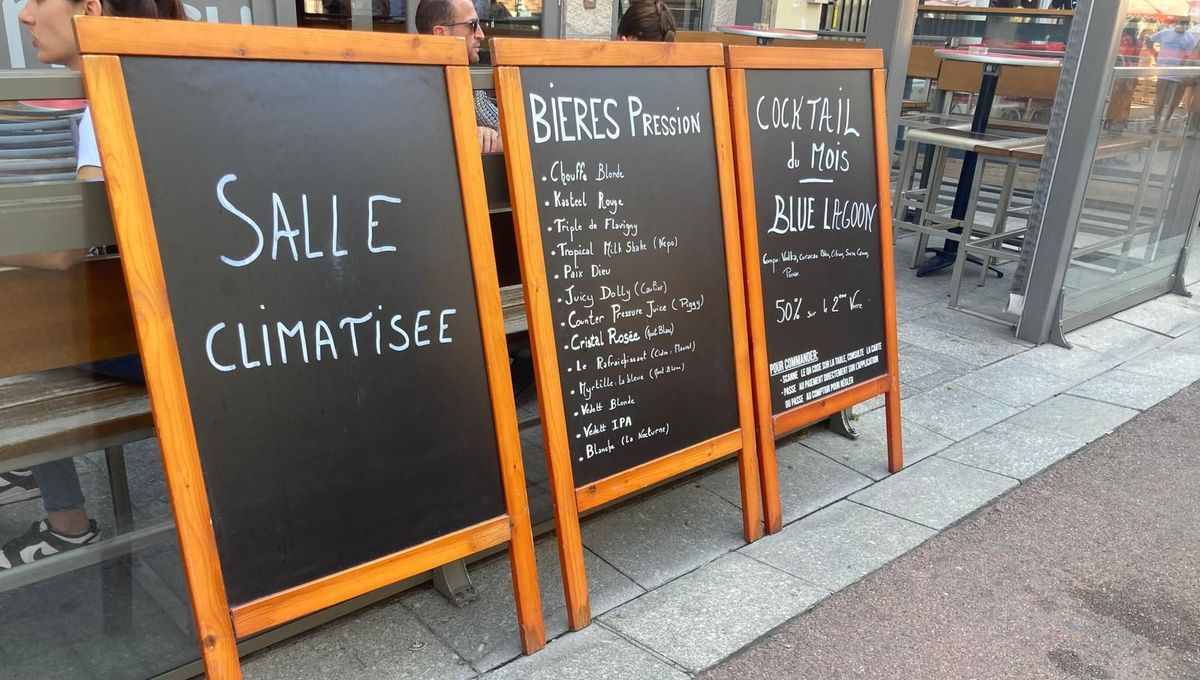 SALLE
CLIMATISEE
BIERES Pression
• Chouffe Blonde
• Kasteel Rouge
• Triple de Flavigny
• Tropical Milk Shake (Nepo)
• Paix Dieu
• Juicy Dolly (Caulier)
• Counter Pressure Juice (Piggy)
• Cristal Rosée (Mont Blanc)
• Le Rafraichissant (Cidre: Mauret)
• Myrtille: La bleue (Mont Blanc)
• Vedett Blonde
• Vedett IPA
• Blanche (La Nocturne)
COCKTAIL
du Mois
BLUE LAGOON
Compo: Vodka, Curacao Bleu, Citron, Sucre Canne,
50% sur le 2ème Verre
POUR COMMANDER:
- SCANNE LE QR CODE SUR LA TABLE, CONSULTE LA CARTE
- PASSE AU PAIEMENT DIRECTEMENT SUR L'APPLICATION
OU PASSE AU COMPTOIR POUR RÉGLER